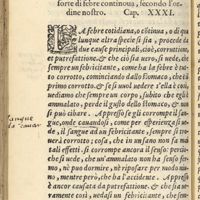 forte di febre continoua, secondo l'or-
dine nostro. Cap. XXXI.
LA febre cotidiana, o ostinata, o di qua
lunque altra specie si sia, procede da
due cause principali, cioè, corruttion,
et putrefattione. & che ciò sia uero, si uede, che
sempre un febricitante, come ha la febre è tut-
to corrotto, cominciando dallo stomaco, che è il
primo corrotto. & se si uuol uedere s'ella è così,
uediamo che sempre un corpo, subito che egli è
ammalato, perde il gusto dello stomaco, & un
si può cibare. Appresso se gli corrompe il san-
gue, onde cauandosi, come per esperienza si ue-
de, il sangue ad un febricitante, sempre si tro-
uerà corrotto; cosa, che in un sano non fa ma
tali effetti. si corrompe ancora il fiato: perche
che si uede, che un'ammalato non ha senso fer-
mo, nè può dormire, nè riposare per modo niu-
no, mentre però, che ha l'accidente. Appresso
è ancor causata da putrefattione. & che sia la
uerità ciò, uedasi un febricitante, che sem-
sangue
la cauar